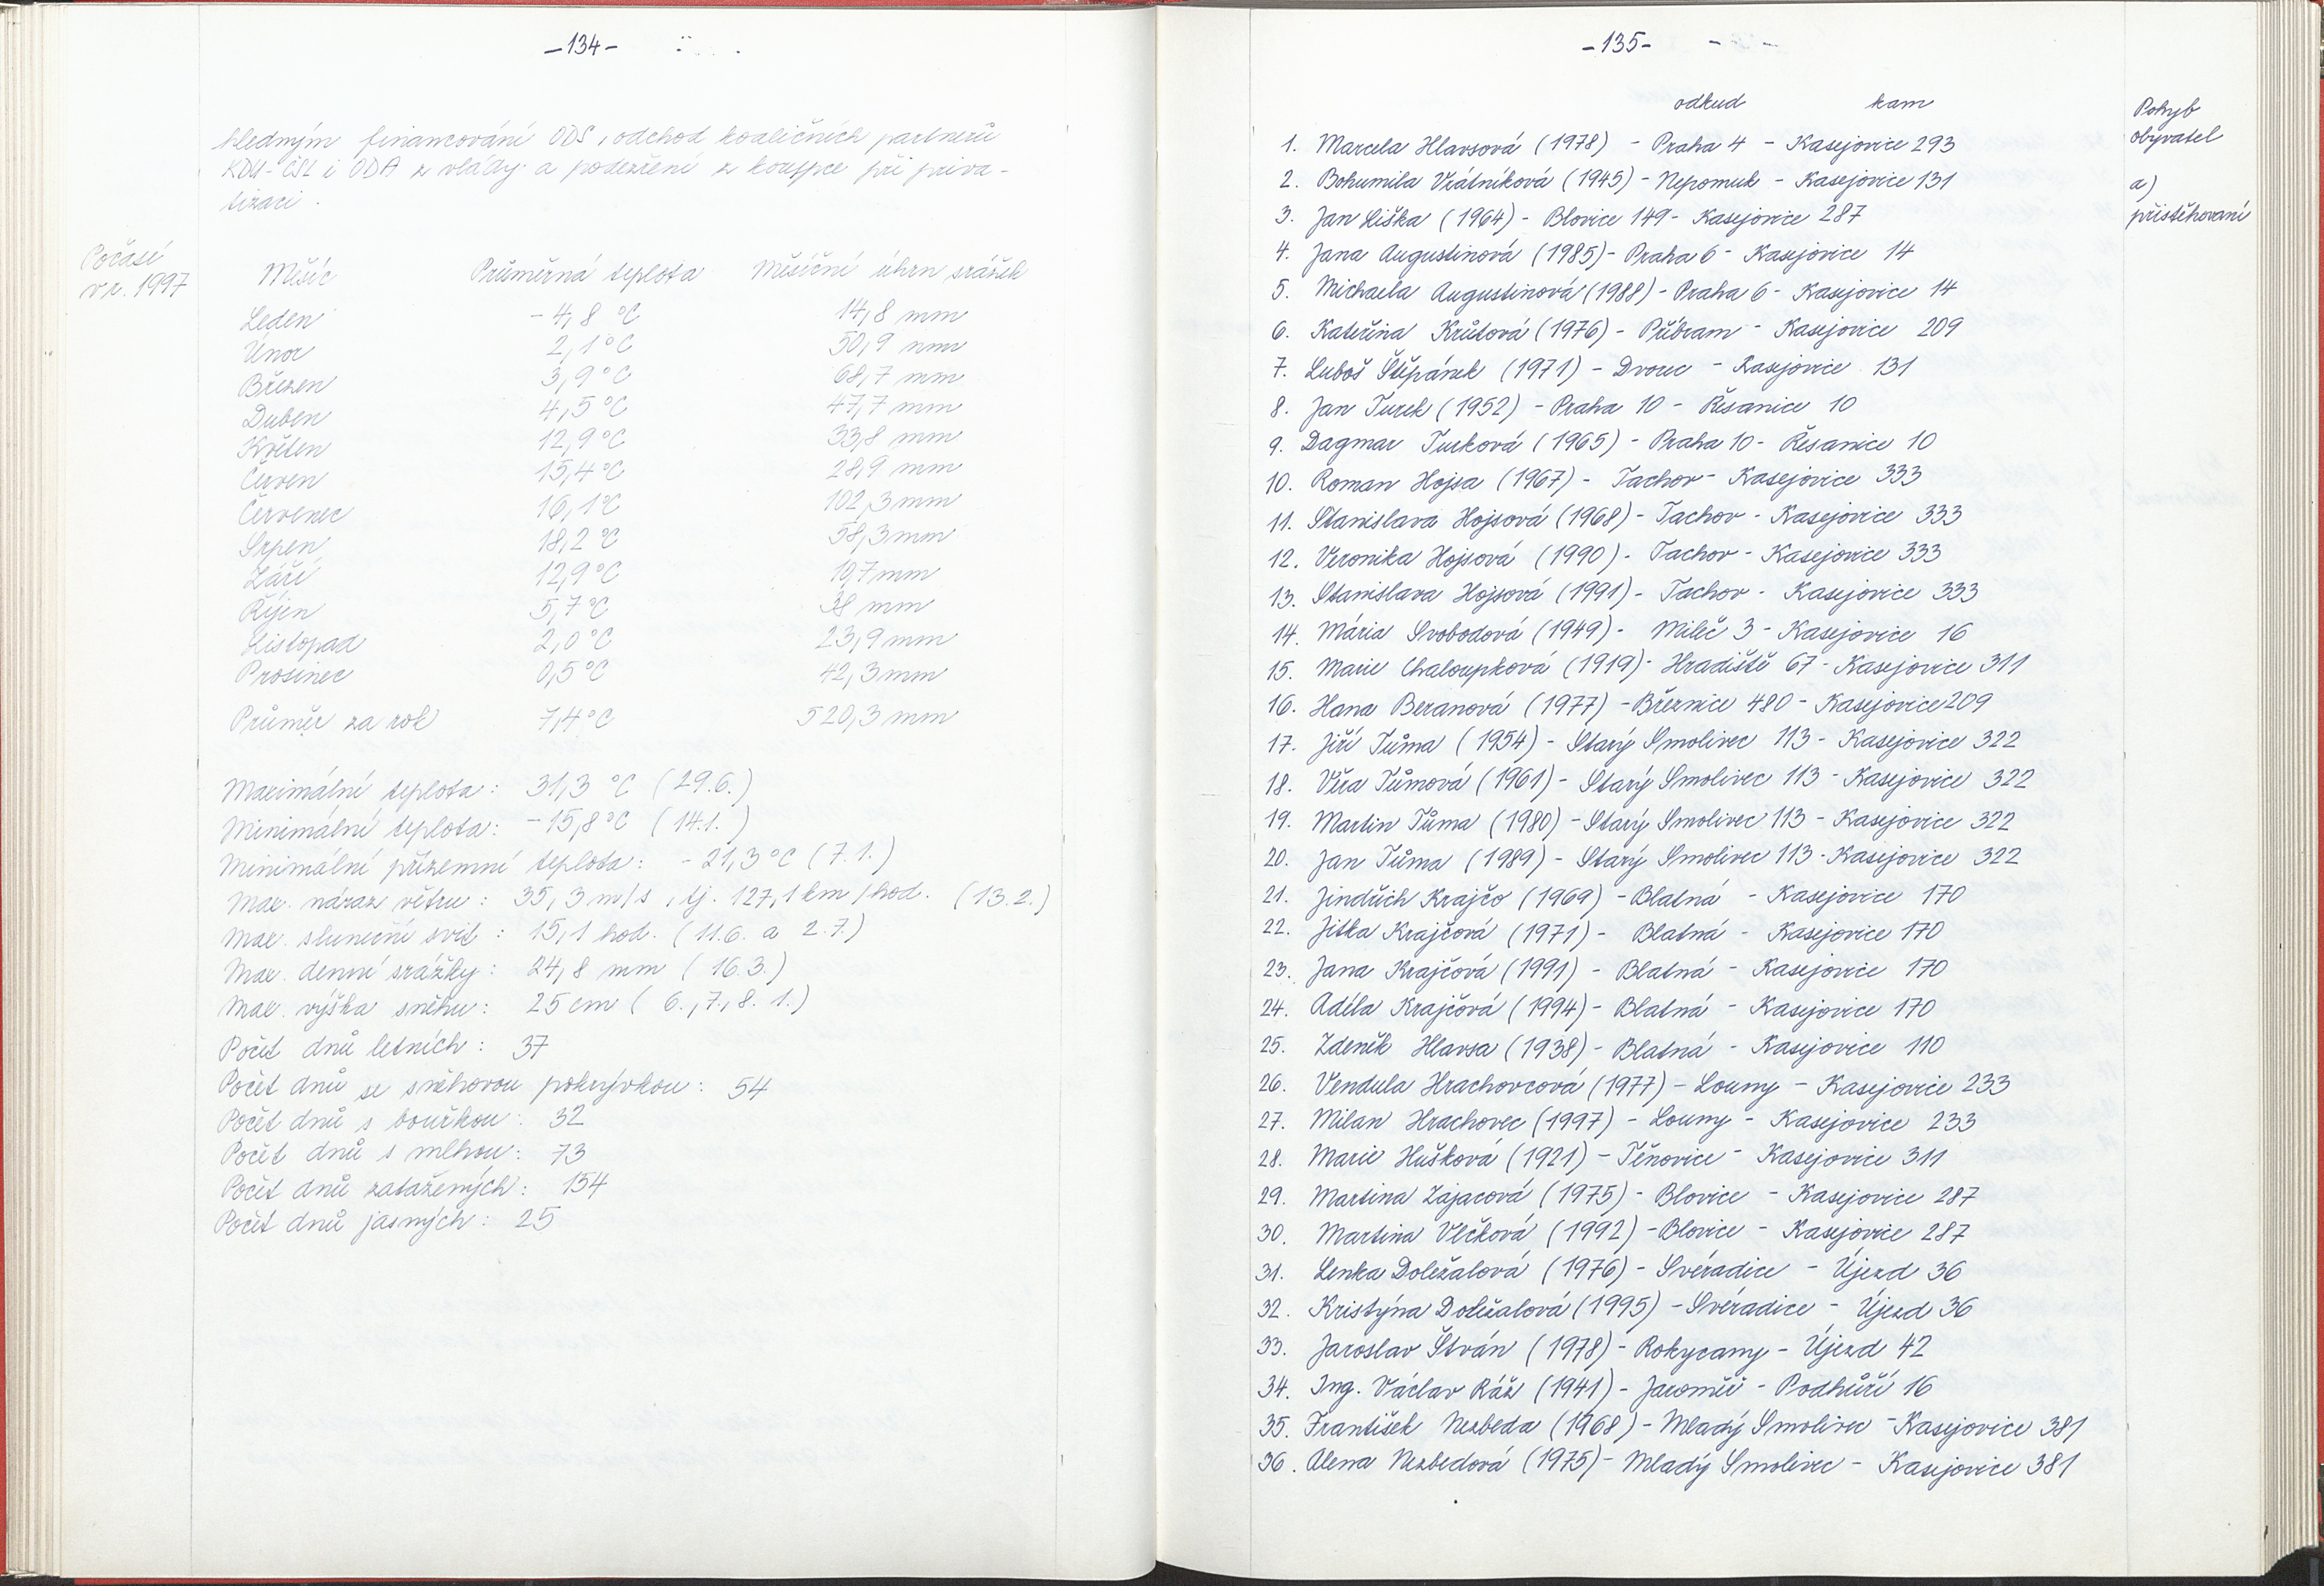 -134-
hledným financování ODS, odchod koaličních partnerů
KDU-ČSL i ODA z vlády a podezření z korupce při priva-
tizaci.
Počasí
v r. 1997
Měsíc Průměrná teplota Měsíční úhrn srážek
Leden -4,8 °C 14,8 mm
Únor 2,1 °C 50,9 mm
Březen 3,9 °C 68,7 mm
Duben 4,5 °C 47,7 mm
Květen 12,9 °C 33,8 mm
Červen 15,4 °C 28,9 mm
Červenec 16,1 °C 102,3 mm
Srpen 18,2 °C 58,3 mm
Září 12,9 °C 10,7 mm
Říjen 5,7 °C 38 mm
Listopad 2,0 °C 23,9 mm
Prosinec 0,5 °C 42,3 mm
Průměr za rok 7,4 °C 520,3 mm
Maximální teplota: 31,3 °C (29.6.)
Minimální teplota: -15,8 °C (14.1.)
Minimální přízemní teplota: -21,3 °C (7.1.)
Max. náraz větru: 35,3 m/s, tj. 127,1 km/hod. (13.2.)
Max. sluneční svit: 15,1 hod. (11.6. a 2.7.)
Max. denní srážky: 24,8 mm (16.3.)
Max. výška sněhu: 25 cm (6., 7., 8. 1.)
Počet dnů letních: 37
Počet dnů se sněhovou pokrývkou: 54
Počet dnů s bouřkou: 32
Počet dnů s mlhou: 73
Počet dnů zatažených: 154
Počet dnů jasných: 25
-135-
odkud kam
Pohyb
obyvatel
a)
přistěhovaní
1. Marcela Hlavsová (1978) - Praha 4 - Kasejovice 293
2. Bohumila Vrátníková (1945) - Nepomuk - Kasejovice 131
3. Jan Liška (1964) - Blovice 149 - Kasejovice 287
4. Jana Augustinová (1985) - Praha 6 - Kasejovice 14
5. Michaela Augustinová (1988) - Praha 6 - Kasejovice 14
6. Kateřina Krůtová (1976) - Příbram - Kasejovice 209
7. Luboš Štěpánek (1971) - Dvorec - Kasejovice 131
8. Jan Turek (1952) - Praha 10 - Řesanice 10
9. Dagmar Turková (1965) - Praha 10 - Řesanice 10
10. Roman Hojsa (1967) - Tachov - Kasejovice 333
11. Stanislava Hojsová (1968) - Tachov - Kasejovice 333
12. Veronika Hojsová (1990) - Tachov - Kasejovice 333
13. Stanislava Hojsová (1991) - Tachov - Kasejovice 333
14. Mária Svobodová (1949) - Mileč 3 - Kasejovice 16
15. Marie Chaloupková (1919) - Hradiště 67 - Kasejovice 311
16. Hana Beranová (1977) - Březnice 480 - Kasejovice 209
17. Jiří Tůma (1954) - Starý Smolivec 113 - Kasejovice 322
18. Věra Tůmová (1961) - Starý Smolivec 113 - Kasejovice 322
19. Martin Tůma (1980) - Starý Smolivec 113 - Kasejovice 322
20. Jan Tůma (1989) - Starý Smolivec 113 - Kasejovice 322
21. Jindřich Krajčo (1969) - Blatná - Kasejovice 170
22. Jitka Krajčová (1971) - Blatná - Kasejovice 170
23. Jana Krajčová (1991) - Blatná - Kasejovice 170
24. Adéla Krajčová (1994) - Blatná - Kasejovice 170
25. Zdeněk Hlavsa (1938) - Blatná - Kasejovice 110
26. Vendula Hrachovcová (1977) - Louny - Kasejovice 233
27. Milan Hrachovec (1997) - Louny - Kasejovice 233
28. Marie Hušková (1921) - Těnovice - Kasejovice 311
29. Martina Zajacová (1975) - Blovice - Kasejovice 287
30. Martina Vlčková (1992) - Blovice - Kasejovice 287
31. Lenka Doležalová (1976) - Svéradice - Újezd 36
32. Kristýna Doležalová (1995) - Svéradice - Újezd 36
33. Jaroslav Štván (1978) - Rokycany - Újezd 42
34. Ing. Václav Ráž (1941) - Jaroměř - Podhůří 16
35. František Nezbeda (1968) - Mladý Smolivec - Kasejovice 381
36. Alena Nezbedová (1975) - Mladý Smolivec - Kasejovice 381